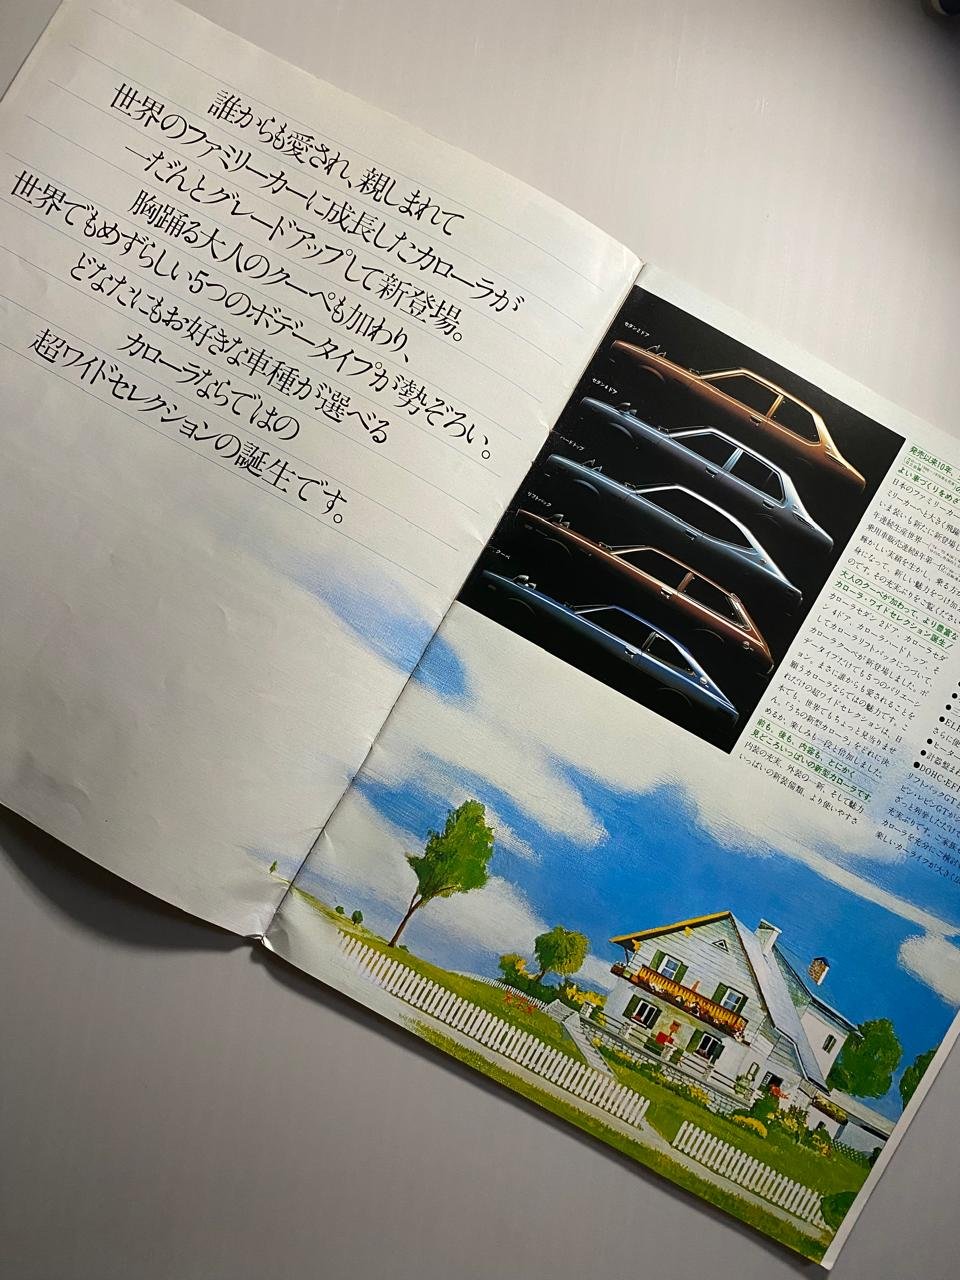 誰からも愛され、親しまれて
世界のファミリーカーに成長したカローラが
一だんとグレードアップして新登場。
胸踊る大人のクーペも加わり、
世界でもめずらしい5つのボデータイプが勢ぞろい。
どなたにもお好きな車種が選べる
カローラならではの
超ワイドセレクションの誕生です。
セダン2ドア
セダン4ドア
ハードトップ
リフトバック
クーペ
発売以来10年。
よい車づくりをめざ
日本のファミリーカー
ミリーカーへと大きく飛躍
いま装いも新たに新登場し
年連続生産世界一
乗用車販売連続8年第一位
輝かしい実績を生かし、乗る方の
身になって、新しい魅力をつけ加
のです。その充実ぶりをご覧ください
大人のクーペが加わって、より豊富な
カローラ・ワイドセレクション誕生!
カローラセダン2ドア、カローラセダ
ン4ドア、カローラハードトップ、そ
してカローラリフトバックにつづいて、
カローラクーペが新登場しました。ボ
データイプだけでも5つのバリエーシ
ョン。まさに誰からも愛されることを
願うカローラならではの魅力です。こ
れだけの超ワイドセレクションは、日
本でも、世界でもちょっと見当りませ
ん。「うちの新型カローラ」をどれに決
めるか、楽しみも一段と倍加しました。
前も、後も、内容も、とにかく
見どころいっぱいの新型カローラです
内装の充実、外装の一新、そして魅力
いっぱいの新装備類、より使いやすさ
さらに使
●ヒーター
●計器盤まわ
●DOHC・EFI
リフトバックGT
ビン・レビンGTが
ざっと列挙しただけで
充実ぶりです。ご家族
カローラを充分にご検討
楽しいカーライフが大きく